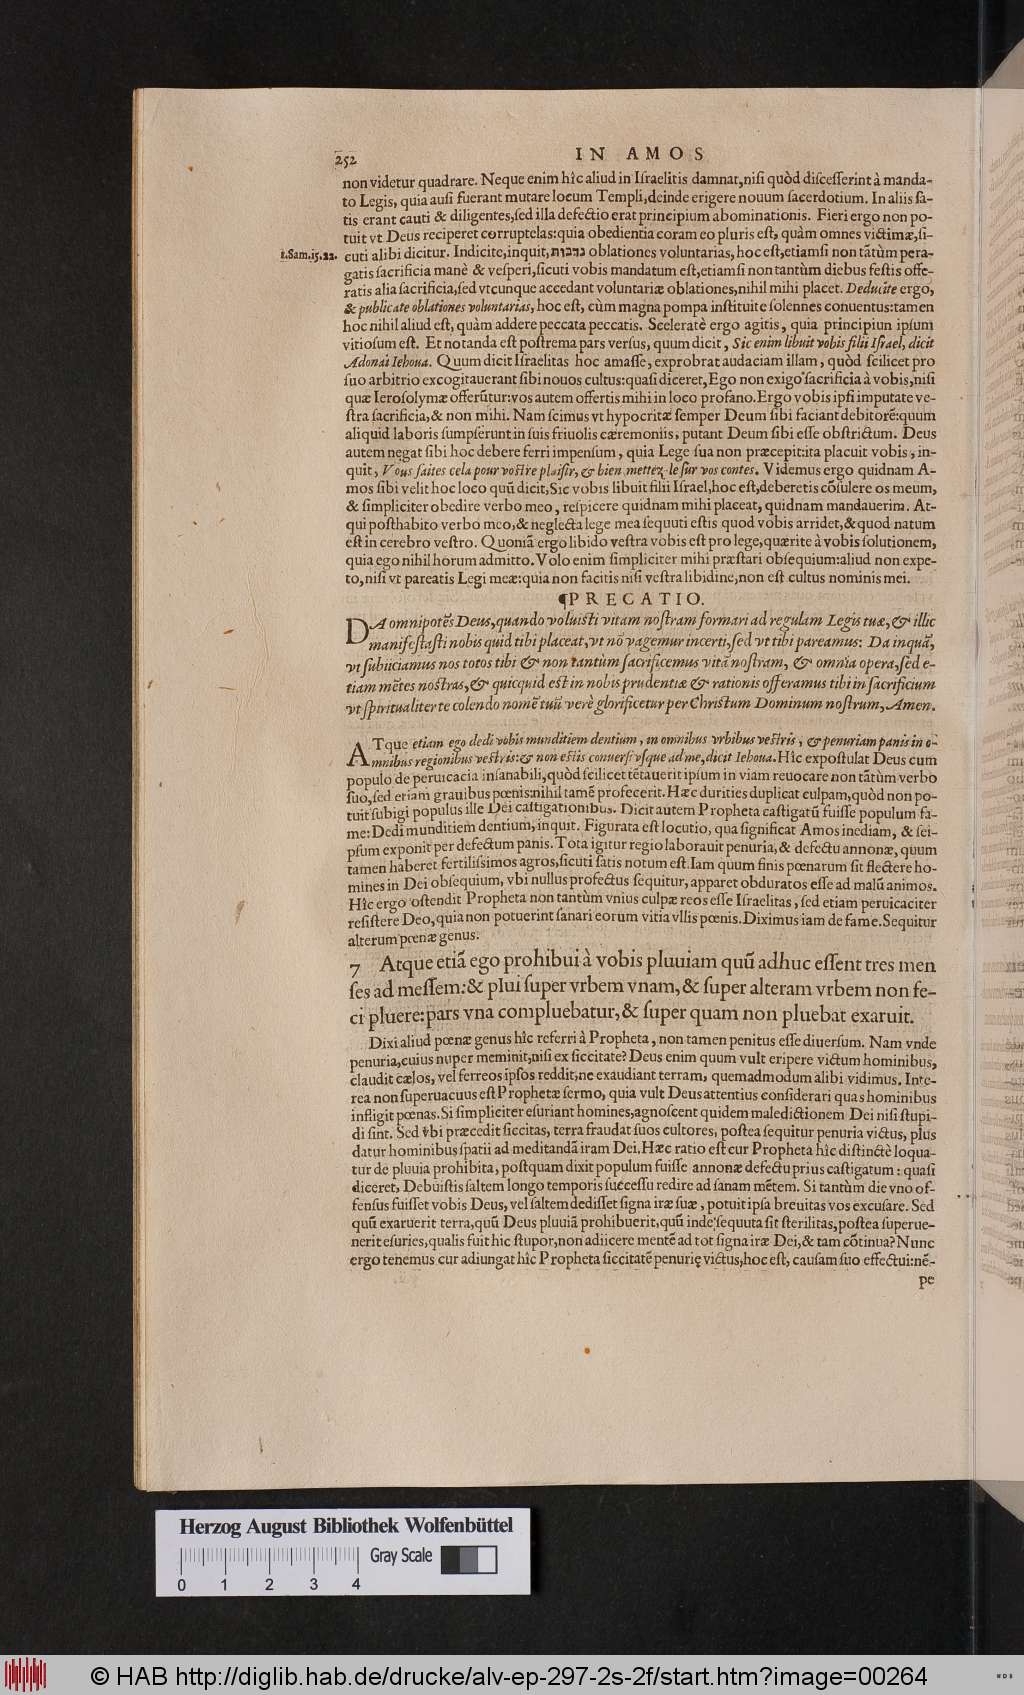 252
IN AMOS
non videtur quadrare. Neque enim hîc aliud in Iſraelitis damnat,niſi quòd diſceſſerint à manda-
to Legis, quia auſi fuerant mutare locum Templi,deinde erigere nouum ſacerdotium. In aliis ſa-
tis erant cauti & diligentes,ſed illa defectio erat principium abominationis. Fieri ergo non po-
tuit vt Deus reciperet corruptelas:quia obedientia coram eo pluris eſt, quàm omnes victimæ,ſi-
1.Sam.15.22.
cuti alibi dicitur. Indicite,inquit,נדבות oblationes voluntarias, hoc eſt,etiamſi non tātùm pera-
gatis ſacrificia manè & veſperi,ſicuti vobis mandatum eſt,etiamſi non tantùm diebus feſtis offe-
ratis alia ſacrificia,ſed vtcunque accedant voluntariæ oblationes,nihil mihi placet. Deducite ergo,
& publicate oblationes voluntarias, hoc eſt, cùm magna pompa inſtituite ſolennes conuentus:tamen
hoc nihil aliud eſt, quàm addere peccata peccatis. Sceleratè ergo agitis, quia principiun ipſum
vitioſum eſt. Et notanda eſt poſtrema pars verſus, quum dicit, Sic enim libuit vobis filii Iſrael, dicit
Adonai Iehoua. Quum dicit Iſraelitas hoc amaſſe, exprobrat audaciam illam, quòd ſcilicet pro
ſuo arbitrio excogitauerant ſibi nouos cultus:quaſi diceret,Ego non exigo ſacrificia à vobis,niſi
quæ Ieroſolymæ offerūtur:vos autem offertis mihi in loco profano.Ergo vobis ipſi imputate ve-
ſtra ſacrificia,& non mihi. Nam ſcimus vt hypocritæ ſemper Deum ſibi faciant debitorē:quum
aliquid laboris ſumpſerunt in ſuis friuolis cæremoniis, putant Deum ſibi eſſe obſtrictum. Deus
autem negat ſibi hoc debere ferri impenſum, quia Lege ſua non præcepit:ita placuit vobis, in-
quit, Vous faites cela pour voſtre plaiſir, & bien mettez-le ſur vos contes. Videmus ergo quidnam A-
mos ſibi velit hoc loco quū dicit,Sic vobis libuit filii Iſrael,hoc eſt,deberetis cōſulere os meum,
& ſimpliciter obedire verbo meo, reſpicere quidnam mihi placeat, quidnam mandauerim. At-
qui poſthabito verbo meo,& neglecta lege mea ſequuti eſtis quod vobis arridet,& quod natum
eſt in cerebro veſtro. Quoniā ergo libido veſtra vobis eſt pro lege,quærite à vobis ſolutionem,
quia ego nihil horum admitto. Volo enim ſimpliciter mihi præſtari obſequium:aliud non expe-
to,niſi vt pareatis Legi meæ:quia non facitis niſi veſtra libidine,non eſt cultus nominis mei.
¶PRECATIO.
DA omnipotēs Deus,quando voluiſti vitam noſtram formari ad regulam Legis tuæ,& illic
manifeſtaſti nobis quid tibi placeat,vt nō vagemur incerti,ſed vt tibi pareamus: Da inquā,
vt ſubiiciamus nos totos tibi & non tantùm ſacrificemus vitā noſtram, & omnia opera,ſed e-
tiam mētes noſtras,& quicquid eſt in nobis prudentiæ & rationis offeramus tibi in ſacrificium
vt ſpiritualiter te colendo nomē tuū verè glorificetur per Chriſtum Dominum noſtrum, Amen.
ATque etiam ego dedi vobis munditiem dentium, in omnibus vrbibus veſtris, & penuriam panis in o-
mnibus regionibus veſtris:& non eſtis conuerſi vſque ad me,dicit Iehoua.Hîc expoſtulat Deus cum
populo de peruicacia inſanabili,quòd ſcilicet tētauerit ipſum in viam reuocare non tātùm verbo
ſuo,ſed etiam grauibus pœnis:nihil tamē profecerit.Hæc durities duplicat culpam,quòd non po-
tuit ſubigi populus ille Dei caſtigationibus. Dicit autem Propheta caſtigatū fuiſſe populum fa-
me:Dedi munditiem dentium,inquit. Figurata eſt locutio, qua ſignificat Amos inediam, & ſei-
pſum exponit per defectum panis.Tota igitur regio laborauit penuria,& defectu annonæ, quum
tamen haberet fertiliſsimos agros,ſicuti ſatis notum eſt.Iam quum finis pœnarum ſit flectere ho-
mines in Dei obſequium, vbi nullus profectus ſequitur, apparet obduratos eſſe ad malū animos.
Hîc ergo oſtendit Propheta non tantùm vnius culpæ reos eſſe Iſraelitas, ſed etiam peruicaciter
reſiſtere Deo,quia non potuerint ſanari eorum vitia vllis pœnis.Diximus iam de fame.Sequitur
alterum pœnæ genus.
7 Atque etiā ego prohibui à vobis pluuiam quū adhuc eſſent tres men
ſes ad meſſem:& plui ſuper vrbem vnam,& ſuper alteram vrbem non fe-
ci pluere:pars vna compluebatur,& ſuper quam non pluebat exaruit.
Dixi aliud pœnæ genus hîc referri à Propheta, non tamen penitus eſſe diuerſum. Nam vnde
penuria,cuius nuper meminit,niſi ex ſiccitate? Deus enim quum vult eripere victum hominibus,
claudit cælos, vel ferreos ipſos reddit,ne exaudiant terram, quemadmodum alibi vidimus. Inte-
rea non ſuperuacuus eſt Prophetæ ſermo, quia vult Deus attentius conſiderari quas hominibus
infligit pœnas.Si ſimpliciter eſuriant homines,agnoſcent quidem maledictionem Dei niſi ſtupi-
di ſint. Sed vbi præcedit ſiccitas, terra fraudat ſuos cultores, poſtea ſequitur penuria victus, plus
datur hominibus ſpatii ad meditandā iram Dei.Hæc ratio eſt cur Propheta hîc diſtinctè loqua-
tur de pluuia prohibita, poſtquam dixit populum fuiſſe annonæ defectu prius caſtigatum : quaſi
diceret, Debuiſtis ſaltem longo temporis ſucceſſu redire ad ſanam mētem. Si tantùm die vno of-
fenſus fuiſſet vobis Deus, vel ſaltem dediſſet ſigna iræ ſuæ, potuit ipſa breuitas vos excuſare. Sed
quū exaruerit terra,quū Deus pluuiā prohibuerit,quū inde ſequuta ſit ſterilitas,poſtea ſuperue-
nerit eſuries,qualis fuit hic ſtupor,non adiicere mentē ad tot ſigna iræ Dei,& tam cōtinua? Nunc
ergo tenemus cur adiungat hîc Propheta ſiccitatē penurię victus,hoc eſt, cauſam ſuo effectui:nē-
pe
Herzog August Bibliothek Wolfenbüttel
Gray Scale
0 1 2 3 4
© HAB http://diglib.hab.de/drucke/alv-ep-297-2s-2f/start.htm?image=00264